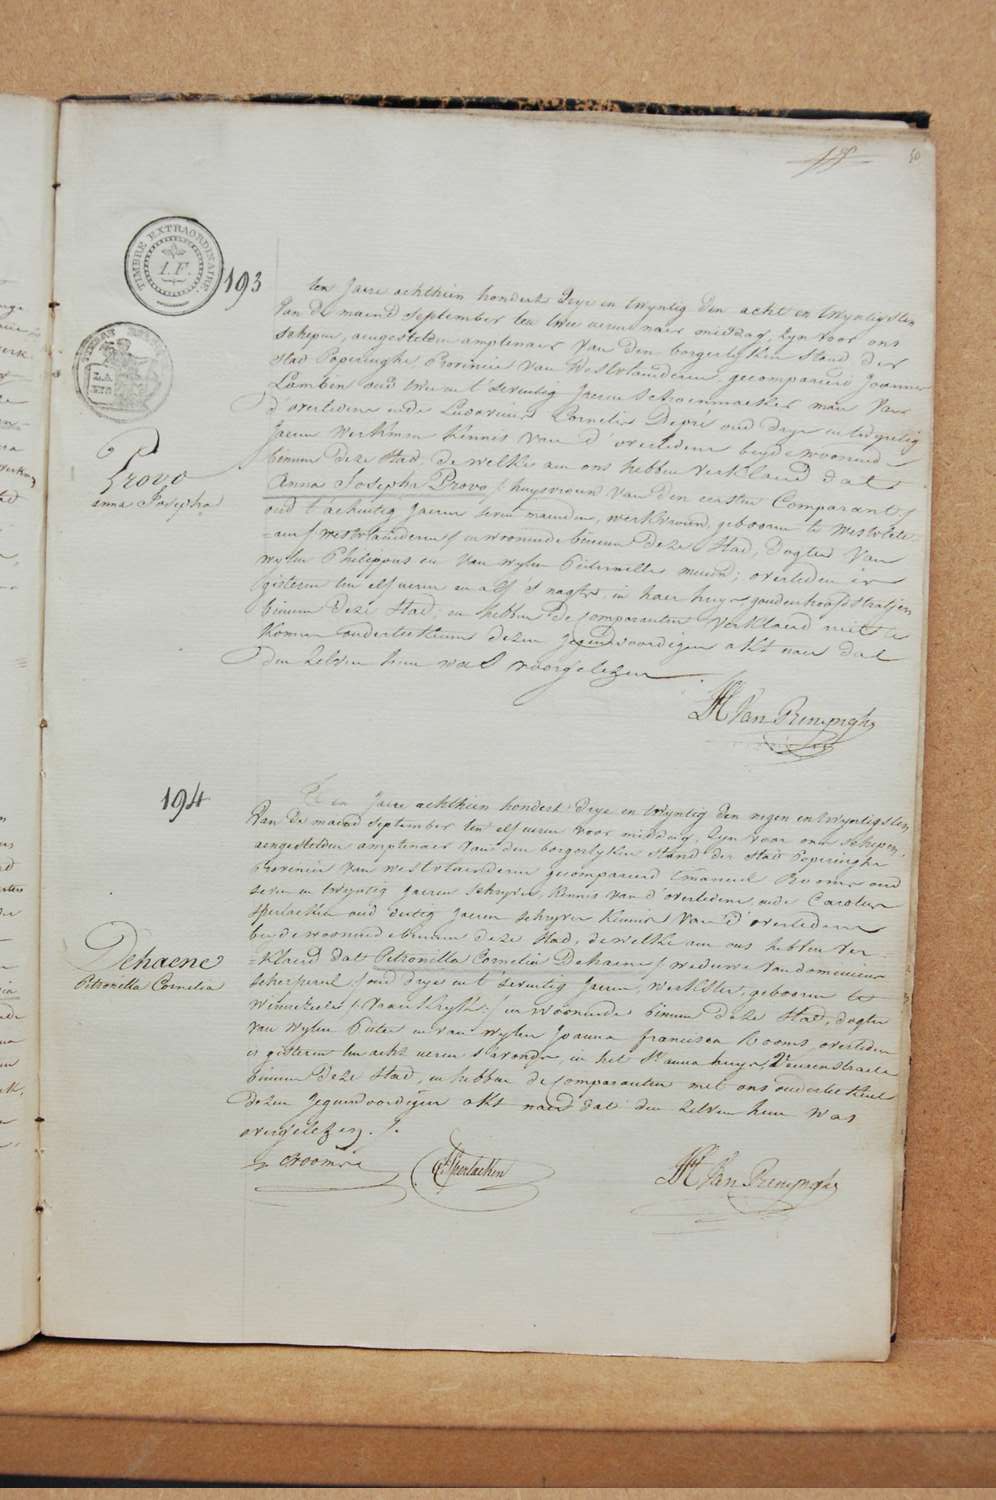 50
TIMBRE EXTRAORDINAIRE
1.F.
193
ten Jaere achthien hondert Drye en twyntig den acht en twyntigsten
Van de maend september ten twee ueren naer middag, zyn voor ons
schepen, aengestelden amptenaer van den borgerlyken stand der
stad Poperinghe, Provincie van Westvlaenderen, gecompareerd Joannes
Lambin oud twee en t'seventig Jaeren schoenmaeker man van
d'overledene ende Ludovicus Cornelis Depré oud drye en
Jaeren werkman kennis van d'overledene beyde woonende
binnen deze stad, de welke aen ons hebben verklaerd dat
Provo
anna Josepha
Anna Josepha Provo / huysvrouw van den eersten Comparant /
oud t'achentig Jaeren seven maenden, werkvrouw, geboren te Westvlete-
=ren / westvlaenderen / en woonende binnen deze stad, Dogter van
wylen Philippus en van wylen Peternelle ; overleden is
gisteren ten elf ueren en alf 's nagts, in haer huys goudenhoofdstraetjen
binnen deze stad, en hebben de comparanten verklaerd niet te
konnen onderteekenen dezen jegenwoordigen akt naer dat
den zelven hun was voorgelezen
Van Renynghe
194
Ten Jaere achthien hondert Drye en twyntig den negen en twyntigsten
Van de maend september ten elf ueren voor middag, zyn voor ons schepen,
aengestelden amptenaer van den borgerlyken stand der stad Poperinghe
Provincie van westvlaenderen gecompareerd Emanuel Rooms oud
seven en twyntig Jaeren schryver, kennis van d'overledene, ende Carolus
Sperlacken oud dertig Jaeren schryver kennis van d'overledene
beyde woonende binnen deze stad, de welke aen ons hebben ver-
=klaerd dat Petronilla Cornelia Dehaene / weduwe van domenicus
Dehaene
Petronilla Cornelia
/ oud drye en t'seventig Jaeren, werkster, geboren te
Winnezeele / Vrankryk / en woonende binnen deze stad, dogter
van wylen Pieter en van wylen Joanna francisca Rooms, overleden
is gisteren ten acht ueren s'avonds, in het St anna huys, Veurenstraete
binnen deze stad, en hebben de comparanten met ons onderteekent
dezen jegenwoordigen akt naer dat den zelven hun was
voorgelezen.
E Rooms
C Sperlacken
Van Renynghe